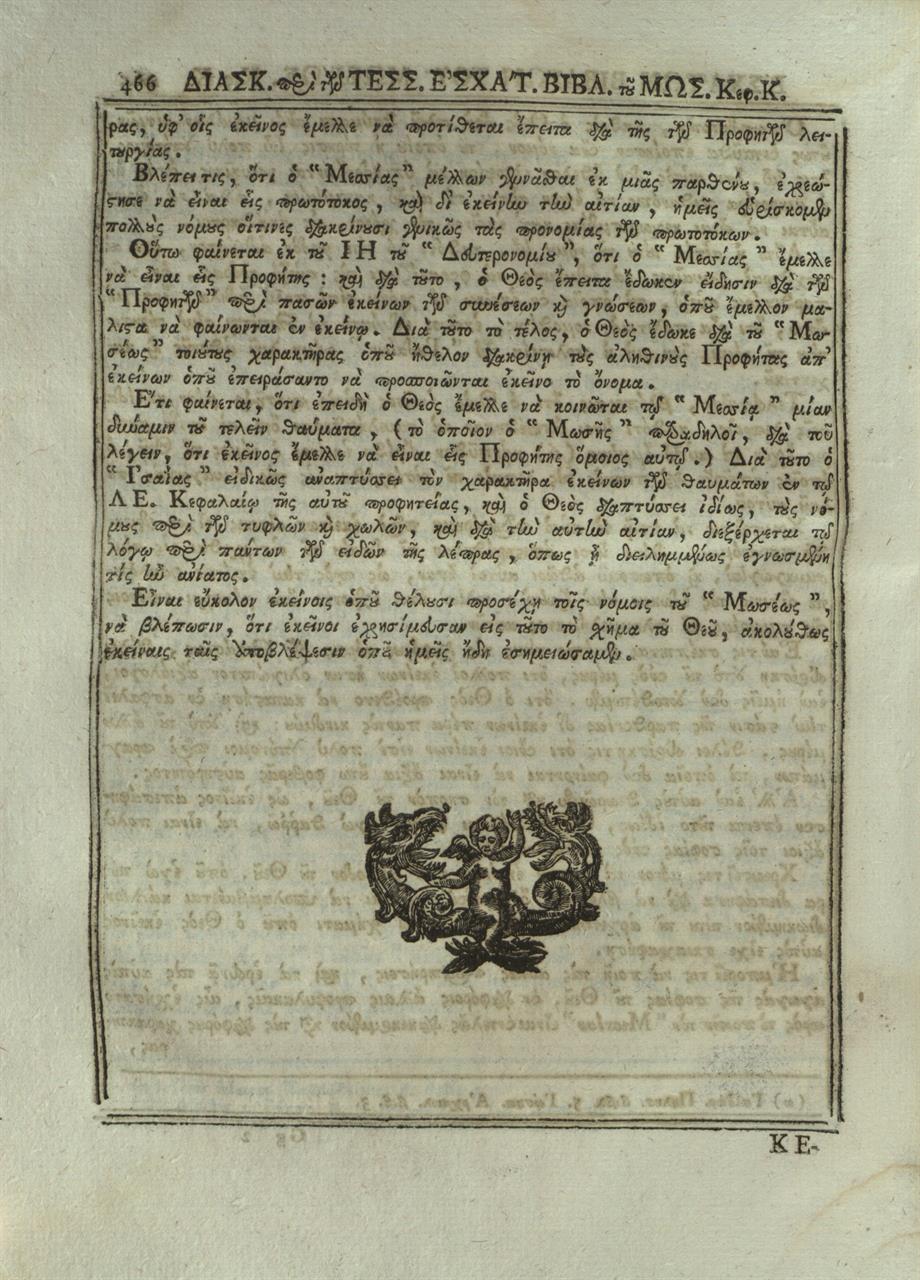 466 ΔΙΑΣΚ. περὶ τῶν ΤΕΣΣ. ἘΣΧΑΤ. ΒΙΒΛ. τοῦ ΜΩΣ. Κεφ. Κ.
ρας, ὑφ' οἷς ἐκεῖνος ἔμελλε νὰ προτίθεται ἔπειτα διὰ τῆς τῶν Προφητῶν λει-
τουργίας.
Βλέπει τις, ὅτι ὁ “Μεσσίας” μέλλων γεννᾶσθαι ἐκ μιᾶς παρθένου, ἐχρεώ-
στησε νὰ εἶναι εἷς πρωτότοκος, καὶ δι' ἐκείνην τὴν αἰτίαν, ἡμεῖς εὑρίσκομεν
πολλοὺς νόμους οἵτινες διακρίνουσι γενικῶς τὰς προνομίας τῶν πρωτοτόκων.
Οὕτω φαίνεται ἐκ τοῦ ΙΗ τοῦ “Δευτερονομίου”, ὅτι ὁ “Μεσσίας” ἔμελλε
νὰ εἶναι εἷς Προφήτης : καὶ διὰ τοῦτο, ὁ Θεὸς ἔπειτα ἔδωκεν εἴδησιν διὰ τῶν
“Προφητῶν” περὶ πασῶν ἐκείνων τῶν συνέσεων καὶ γνώσεων, ὁποῦ ἔμελλον μά-
λιστα νὰ φαίνωνται ἐν ἐκείνῳ. Διὰ τοῦτο τὸ τέλος, ὁ Θεὸς ἔδωκε διὰ τοῦ “Μω-
σέως” τοιούτους χαρακτῆρας ὁποῦ ἤθελον διακρίνῃ τοὺς ἀληθινοὺς Προφήτας ἀπ'
ἐκείνων ὁποῦ ἐπειράσαντο νὰ προσποιῶνται ἐκεῖνο τὸ ὄνομα.
Ἔτι φαίνεται, ὅτι ἐπειδὴ ὁ Θεὸς ἔμελλε νὰ κοινῶται τῷ “Μεσσίᾳ” μίαν
δύναμιν τοῦ τελεῖν θαύματα, (τὸ ὁποῖον ὁ “Μωσῆς” παραδηλοῖ, διὰ τοῦ
λέγειν, ὅτι ἐκεῖνος ἔμελλε νὰ εἶναι εἷς Προφήτης ὅμοιος αὐτῷ.) Διὰ τοῦτο ὁ
“Ἰσαΐας” εἰδικῶς ἀναπτύσσει τὸν χαρακτῆρα ἐκείνων τῶν θαυμάτων ἐν τῷ
ΛΕ. Κεφαλαίῳ τῆς αὐτοῦ προφητείας, καὶ ὁ Θεὸς διαπτύσσει ἰδίως, τοὺς νό-
μους περὶ τῶν τυφλῶν καὶ χωλῶν, καὶ διὰ τὴν αὐτὴν αἰτίαν, διεξέρχεται τῷ
λόγῳ περὶ πάντων τῶν εἰδῶν τῆς λέπρας, ὅπως ἡ διειλημμένως ἐγνωσμένη
τίς ἦν ἀνίατος.
Εἶναι εὔκολον ἐκείνοις ὁποῦ θέλουσι προσέχῃ τοῖς νόμοις τοῦ “Μωσέως”,
νὰ βλέπωσιν, ὅτι ἐκεῖνοι ἐχρησίμευσαν εἰς τοῦτο τὸ σχῆμα τοῦ Θεοῦ, ἀκολούθως
ἐκείναις ταῖς ὑποβλέψεσιν ὁποῦ ἡμεῖς ἤδη ἐσημειώσαμεν.
ΚΕ-